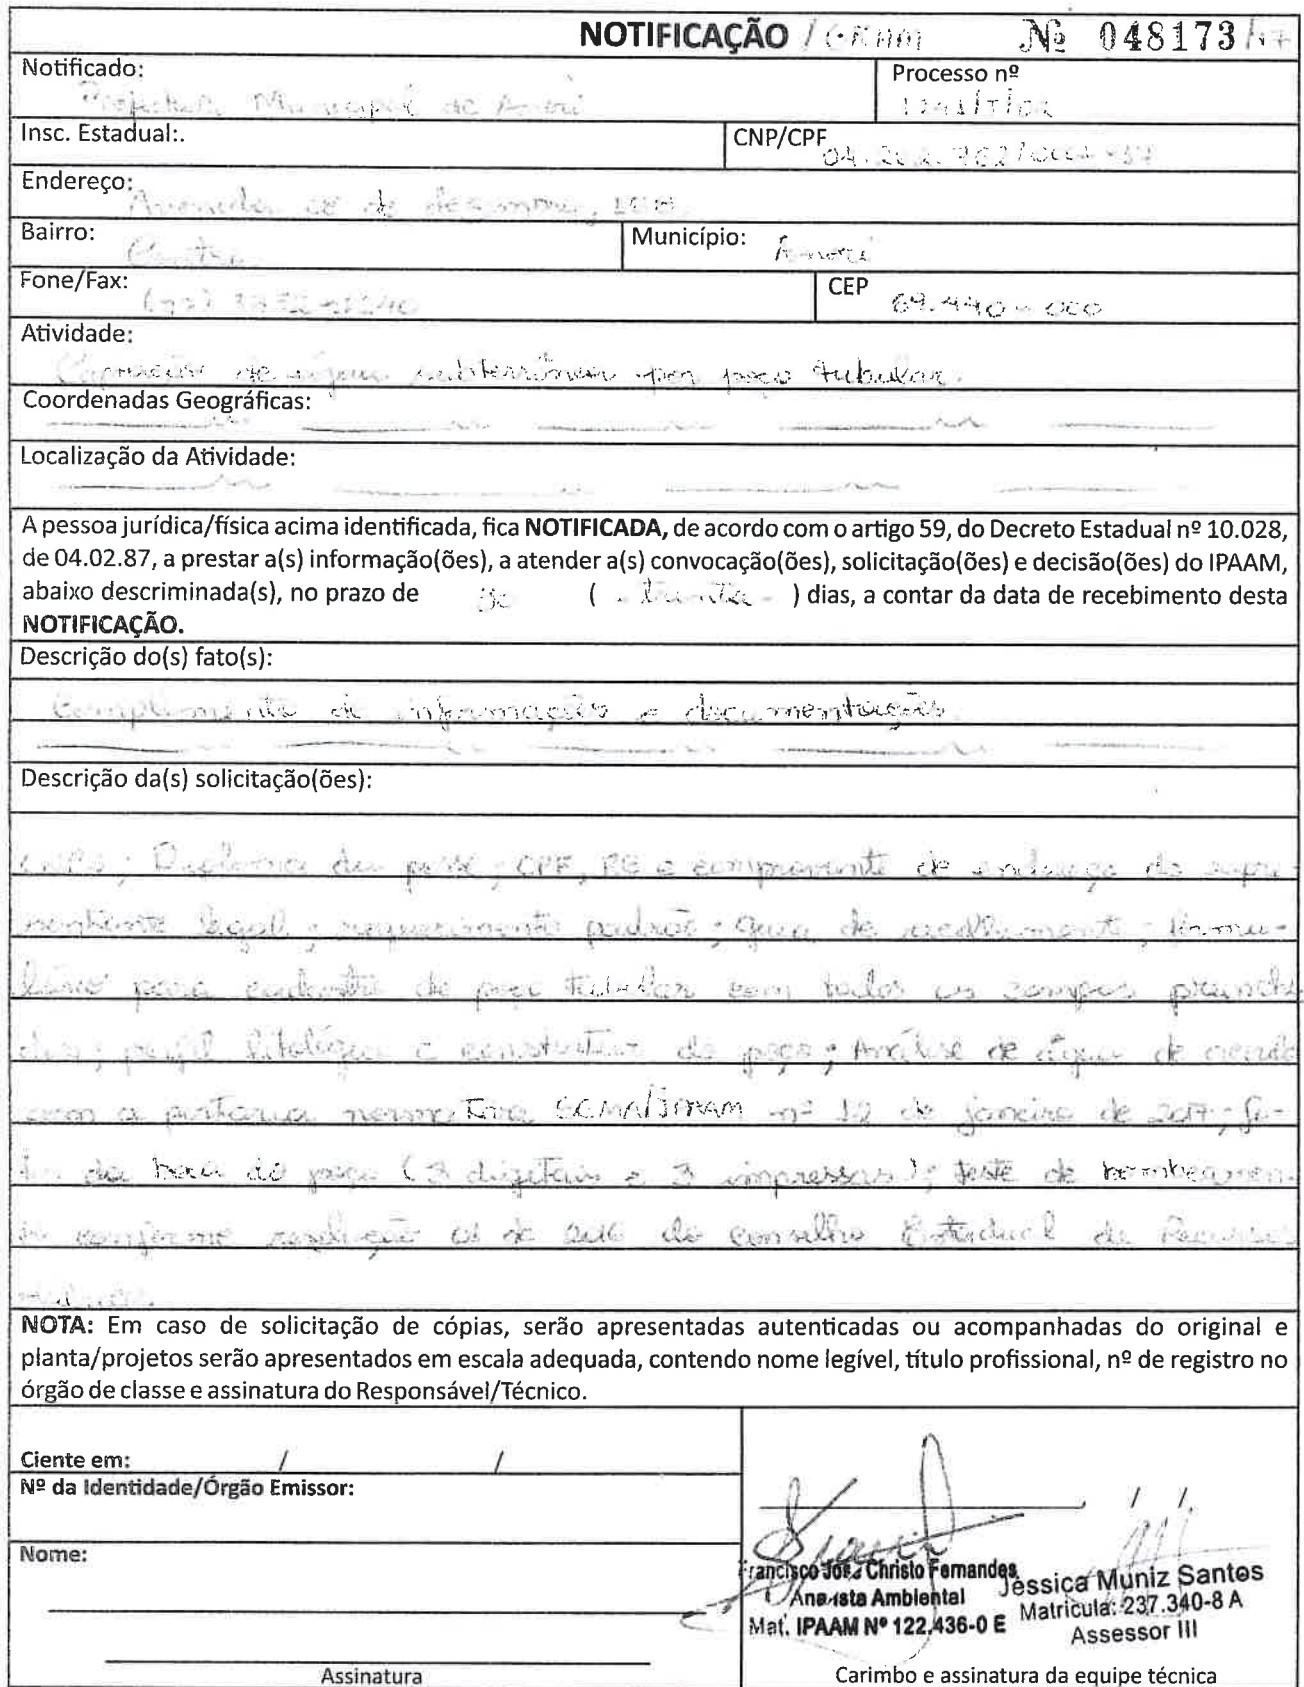 NOTIFICAÇÃO / GRHM Nº 048173/17
Notificado: Prefeitura Municipal de Anori
Processo nº
Insc. Estadual:.
CNP/CPF
Endereço: Avenida de
Bairro: Centro
Município: Anori
Fone/Fax:
CEP 69.440-000
Atividade:
Captação de água subterrânea por poço tubular.
Coordenadas Geográficas:
Localização da Atividade:
A pessoa jurídica/física acima identificada, fica NOTIFICADA, de acordo com o artigo 59, do Decreto Estadual nº 10.028,
de 04.02.87, a prestar a(s) informação(ões), a atender a(s) convocação(ões), solicitação(ões) e decisão(ões) do IPAAM,
abaixo descriminada(s), no prazo de 30 ( - trinta - ) dias, a contar da data de recebimento desta
NOTIFICAÇÃO.
Descrição do(s) fato(s):
Complemento de informações e documentações.
Descrição da(s) solicitação(ões):
CNPJ; Diploma de posse; CPF, RG e comprovante de endereço do repre-
sentante legal; requerimento padrão; guia de recolhimento; formu-
lário para cadastro de poço tubular com todos os campos preenchi
dos; perfil litológico e construtivo do poço; Análise de água de acordo
com a portaria normativa SEMA/IPAAM nº 12 de janeiro de 2017; fo-
tos da boca do poço (3 digitais e 3 impressas); teste de bombeamen
to conforme resolução 01 de 2016 do Conselho Estadual de Recursos
Hídricos.
NOTA: Em caso de solicitação de cópias, serão apresentadas autenticadas ou acompanhadas do original e
planta/projetos serão apresentados em escala adequada, contendo nome legível, título profissional, nº de registro no
órgão de classe e assinatura do Responsável/Técnico.
Ciente em: / /
Nº da Identidade/Órgão Emissor:
Nome:
Assinatura
, / /.
Francisco José Christo Fernandes
Analista Ambiental
Mat. IPAAM Nº 122.436-0 E
Jéssica Muniz Santos
Matricula: 237.340-8 A
Assessor III
Carimbo e assinatura da equipe técnica